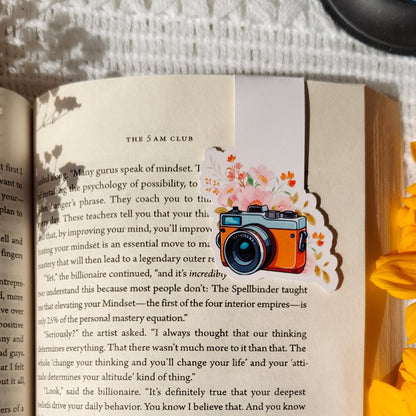 THE 5 AM CLUB
first I
want to
is your
plan to
ell and
fingers
entrepre-
d, more
ive over
positive
any and
ad guys.
ear I felt
out it all,
"Many gurus speak of mindset. T
the psychology of possibility, to
phrase. They coach you to thin
day. These teachers tell you that your thin
that, by improving your mind, you'll improve
your mindset is an essential move to ma
mastery that will then lead to a legendary outer r
"Yet," the billionaire continued, "and it's incredibly
two understand this because most people don't: The Spellbinder taught
me that elevating your Mindset—the first of the four interior empires—is
only 25% of the personal mastery equation."
"Seriously?" the artist asked. "I always thought that our thinking
determines everything. That there wasn't much more to it than that. The
whole 'change your thinking and you'll change your life' and your 'atti-
tude determines your altitude' kind of thing."
"Look," said the billionaire. "It's definitely true that your deepest
beliefs drive your daily behavior. You know I believe that. And you know